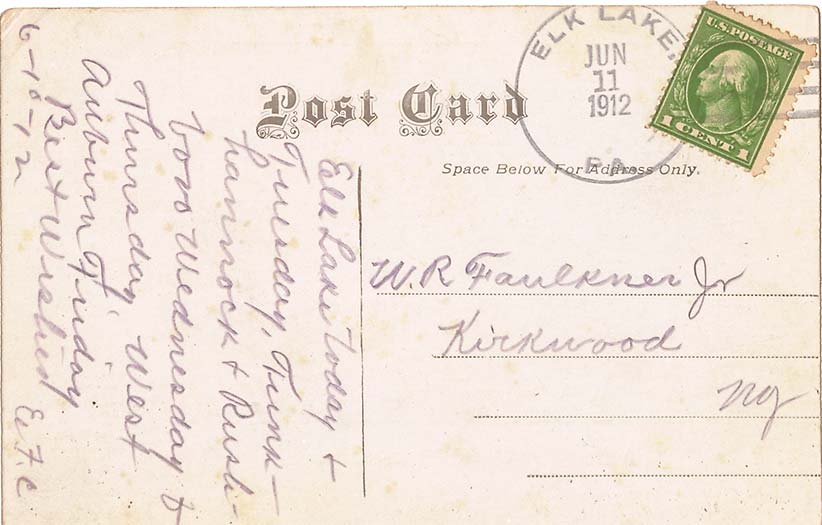 Post Card
ELK LAKE,
JUN
11
1912
PA.
U.S. POSTAGE
1 CENT 1
Space Below For Address Only.
W. R Faulkner Jr
Kirkwood
NY
Elk Lake today &
Tuesday, Tunk-
hannock & Rush-
boro Wednesday &
Thursday, West
Auburn Friday
Best Wishes
E. F. C
6-10-12